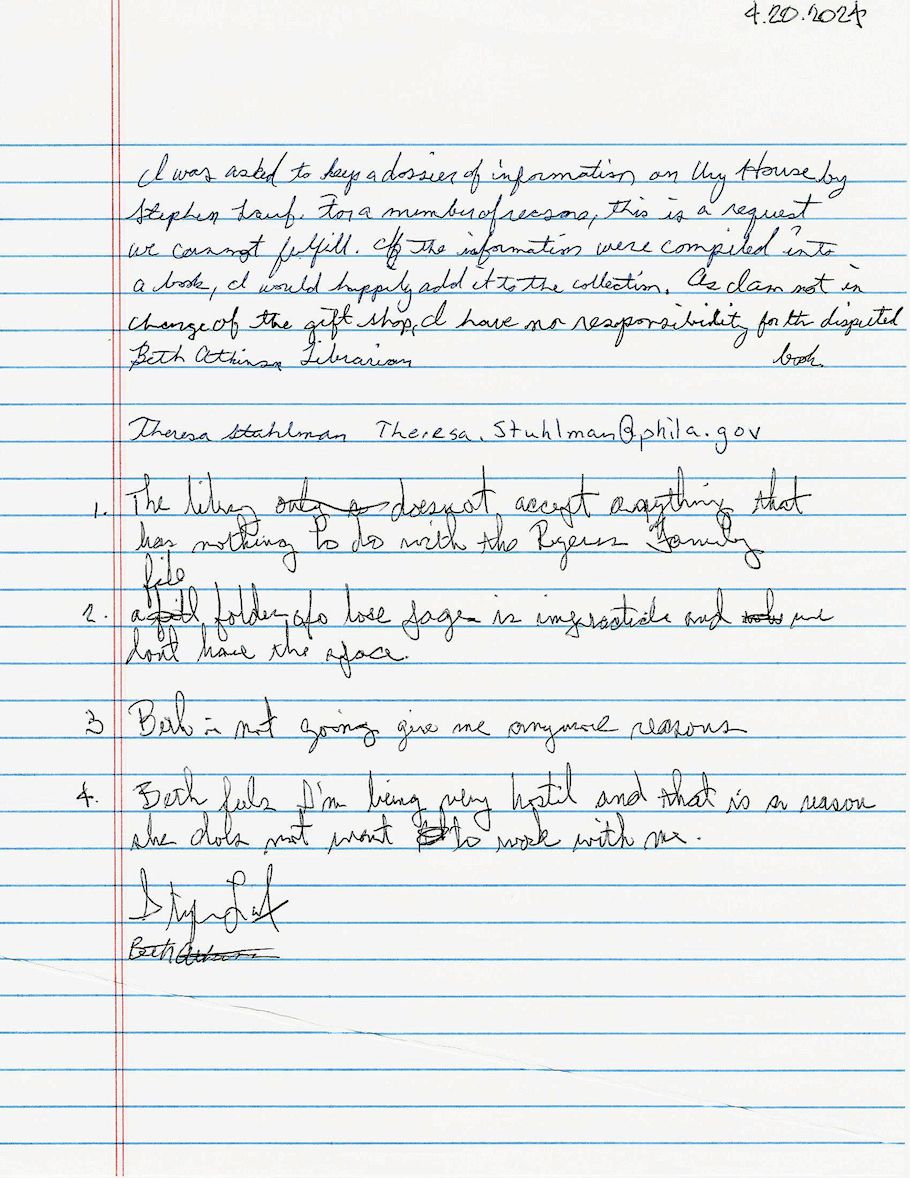 4.20.2024
I was asked to keep a dossier of information on Ury House by
Stephen Lauf. For a number of reasons, this is a request
we cannot fulfill. If the information were compiled into
a book, I would happily add it to the collection. As I am not in
charge of the gift shop, I have no responsibility for the disputed
Beth Atkinson Librarian book.
Theresa Stuhlman Theresa.Stuhlman@phila.gov
1. The library does not accept anything that
has nothing to do with the Ryerss Family
file
2. a folder of lose page is impractide and we
dont have the space.
3 Beth is not going give me anymore reasons
4. Beth feels I'm being very hostil and that is a reason
she does not want to work with me.
Stephen Lauf
Beth